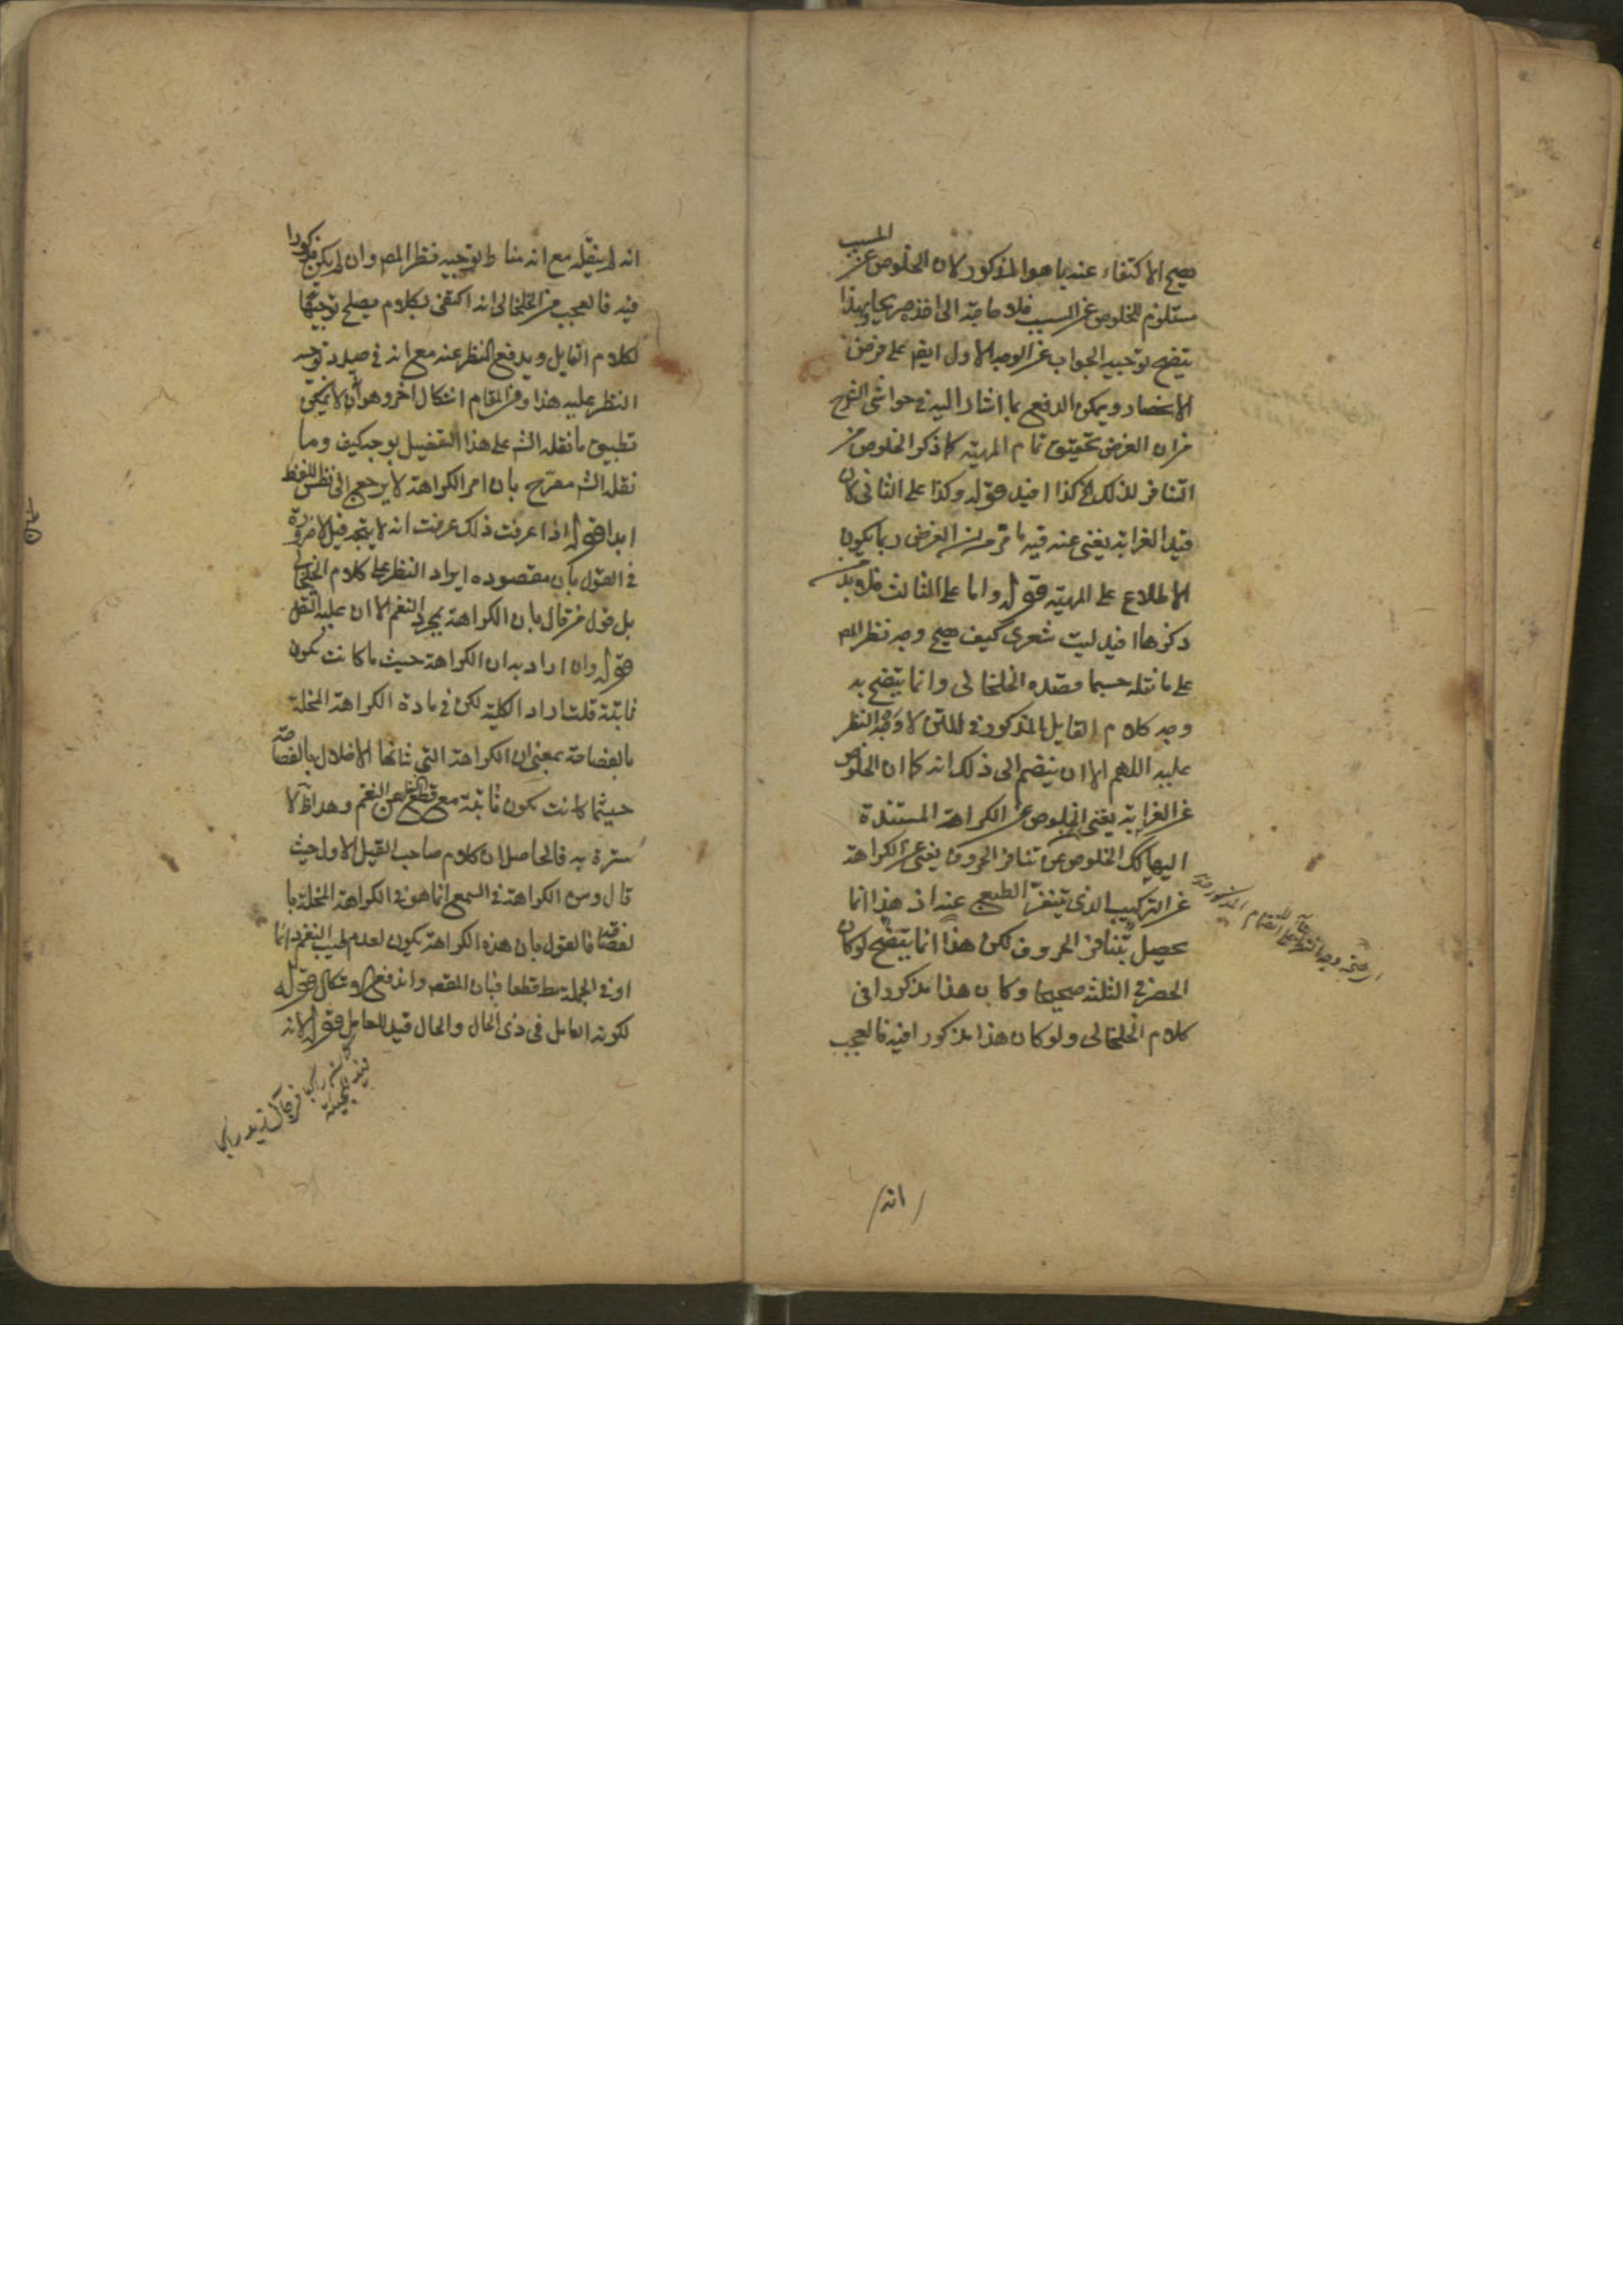 يصح الاكتفاء عنه بما هو المذكور لان الخلوص عن المسبب
مستلزم للخلوص عن السبب فلا حاجة الى اخذه صريحا وبهذا
يتضح توجيه الجواب عن الوجه الاول ايضا على فرض
الانحصار ويمكن الدفع بما اشار اليه في حواشي الشرح
من ان الغرض تحقيق تمام المهية كما ذكر الخلوص من
التنافر لذلك كذا افيد قوله وكذا على الثاني لان
قيد الغرابة يغني عنه فيه ما مر من ان الغرض ربما يكون
الاطلاع على المهية قوله واما على الثالث فلا بد من
ذكرها افيد ليت شعري كيف صح وجه نظر المص
على ما نقله حسبما قصده الخلخالى وانما يتضح به
وجه كلام القايل المذكور في المتن لا وجه النظر
عليه اللهم الا ان ينضم الى ذلك انه كما ان الخلوص
عن الغرابة يغني الخلوص عن الكراهة المستندة
اليها كك الخلوص عن تنافر الحروف يغني عن الكراهة
عن التركيب الذي يتنفر الطبع عنه اذ هذا انما
يحصل بتنافر الحروف لكن هذا انما يتضح لو كان
الحصر في الثلثة صحيحا وكان هذا مذكورا في
كلام الخلخالى ولو كان هذا مذكورا فيه فالعجب
انه
انه لم ينقله مع انه مناط توجيه نظر المص وان لم يكن مذكورا
فيه فالعجب من الخلخالى انه اكتفى بكلام يصلح توجيها
لكلام القايل ويدفع النظر عنه مع انه في صدد توجيه
النظر عليه هذا وفي المقام اشكال اخر وهو انه لا يمكن
تطبيق ما نقله الش على هذا التفصيل بوجه كيف وما
نقله الش مصرح بان امر الكراهة لا يرجع الى نفس اللفظ
ابدا قوله اذا عرفت ذلك عرفت انه لا يتجه قيل لا ضرورة
في القول بان مقصوده ايراد النظر على كلام الخلخالى
بل قول من قال بان الكراهة بمجرد النغم الا ان عليه النقل
قوله وان اراد به ان الكراهة حيث ما كانت تكون
ثابتة قلت اراد الكلية لكن في مادة الكراهة المخلة
بالفصاحة بمعنى ان الكراهة التي شانها الاخلال بالفصاحة
حيثما كانت تكون ثابتة مع قطع النظر عن النغم وهذا لا
سترة به فالحاصل ان كلام صاحب القيل الاول حيث
قال ومن الكراهة في السمع انما هو في الكراهة المخلة با
لفصاحة فالقول بان هذه الكراهة يكون لعدم طيب النغم دائما
او في الجملة بط قطعا فبان المقصد واندفع الاشكال قوله
لكونه العامل في ذي الحال والحال قيد للعامل قوله لانه